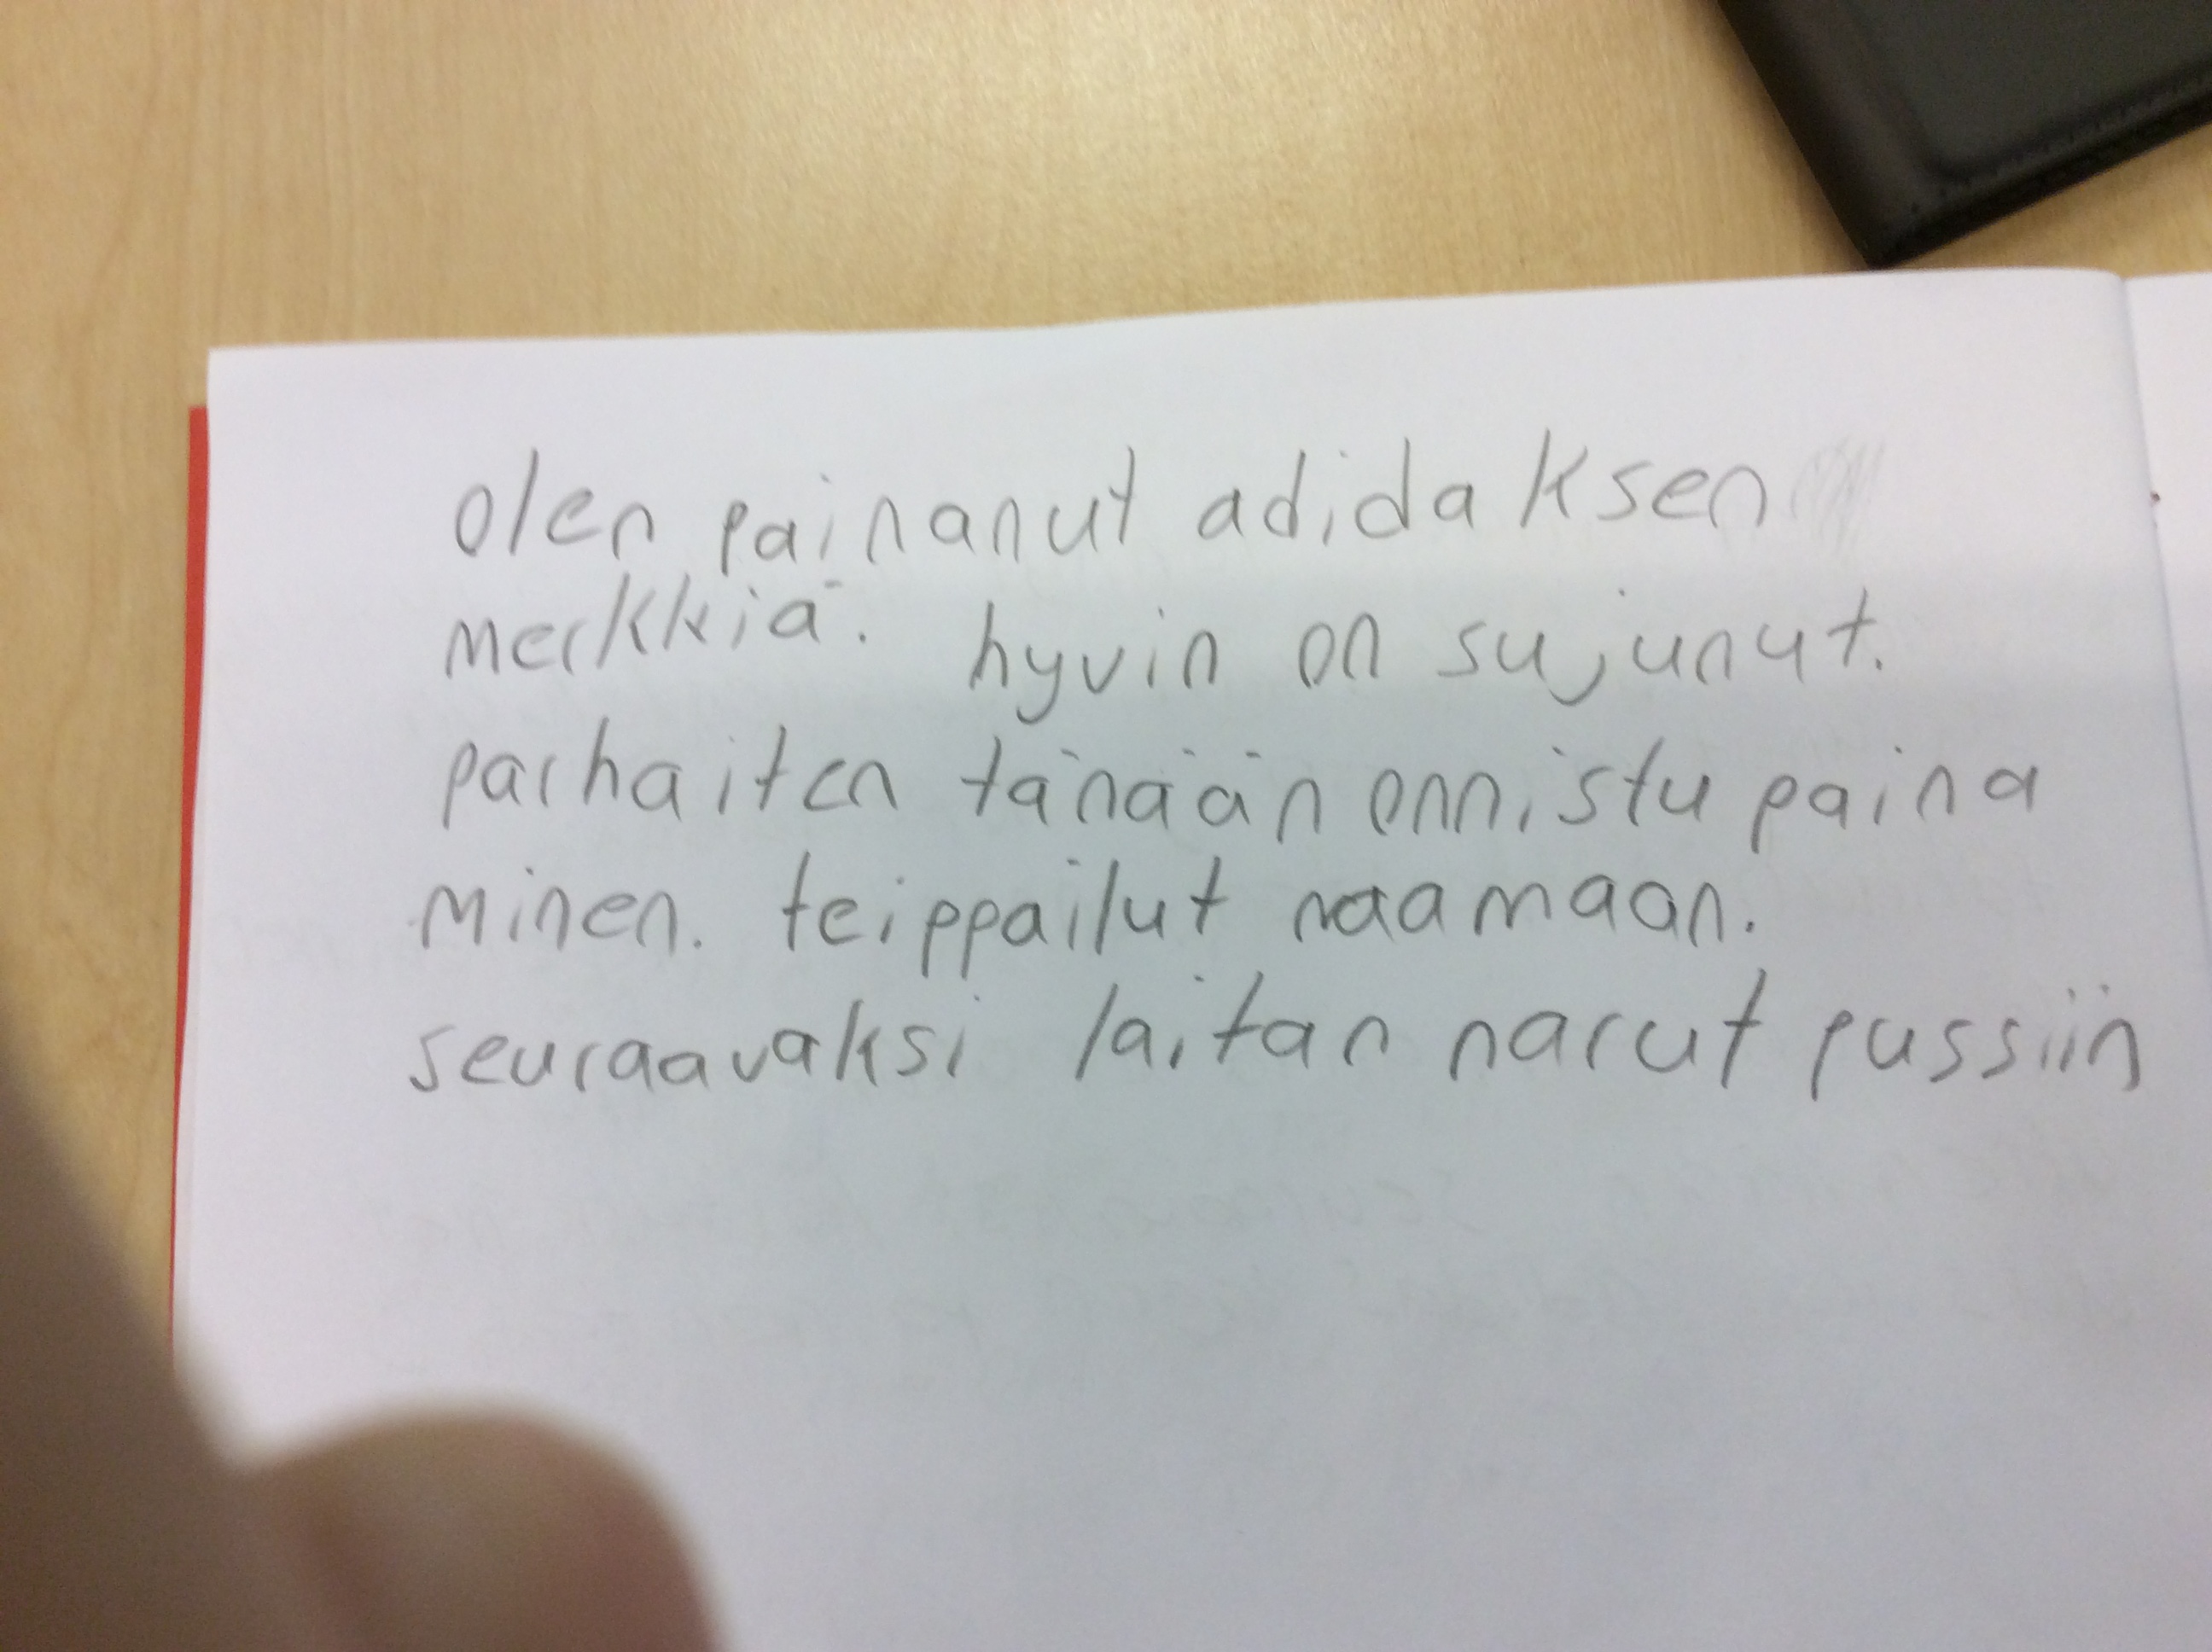 olen painanut adidaksen
merkkiä. hyvin on sujunut.
parhaiten tänään onnistu paina
minen. teippailut naamaan.
seuraavaksi laitan narut pussiin